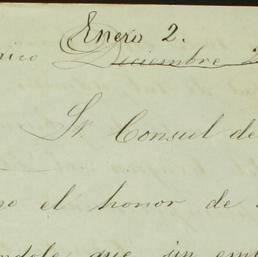 Enero 2.
rico Diciembre 2
Sr. Consul de
o el honor de
ndole que un em